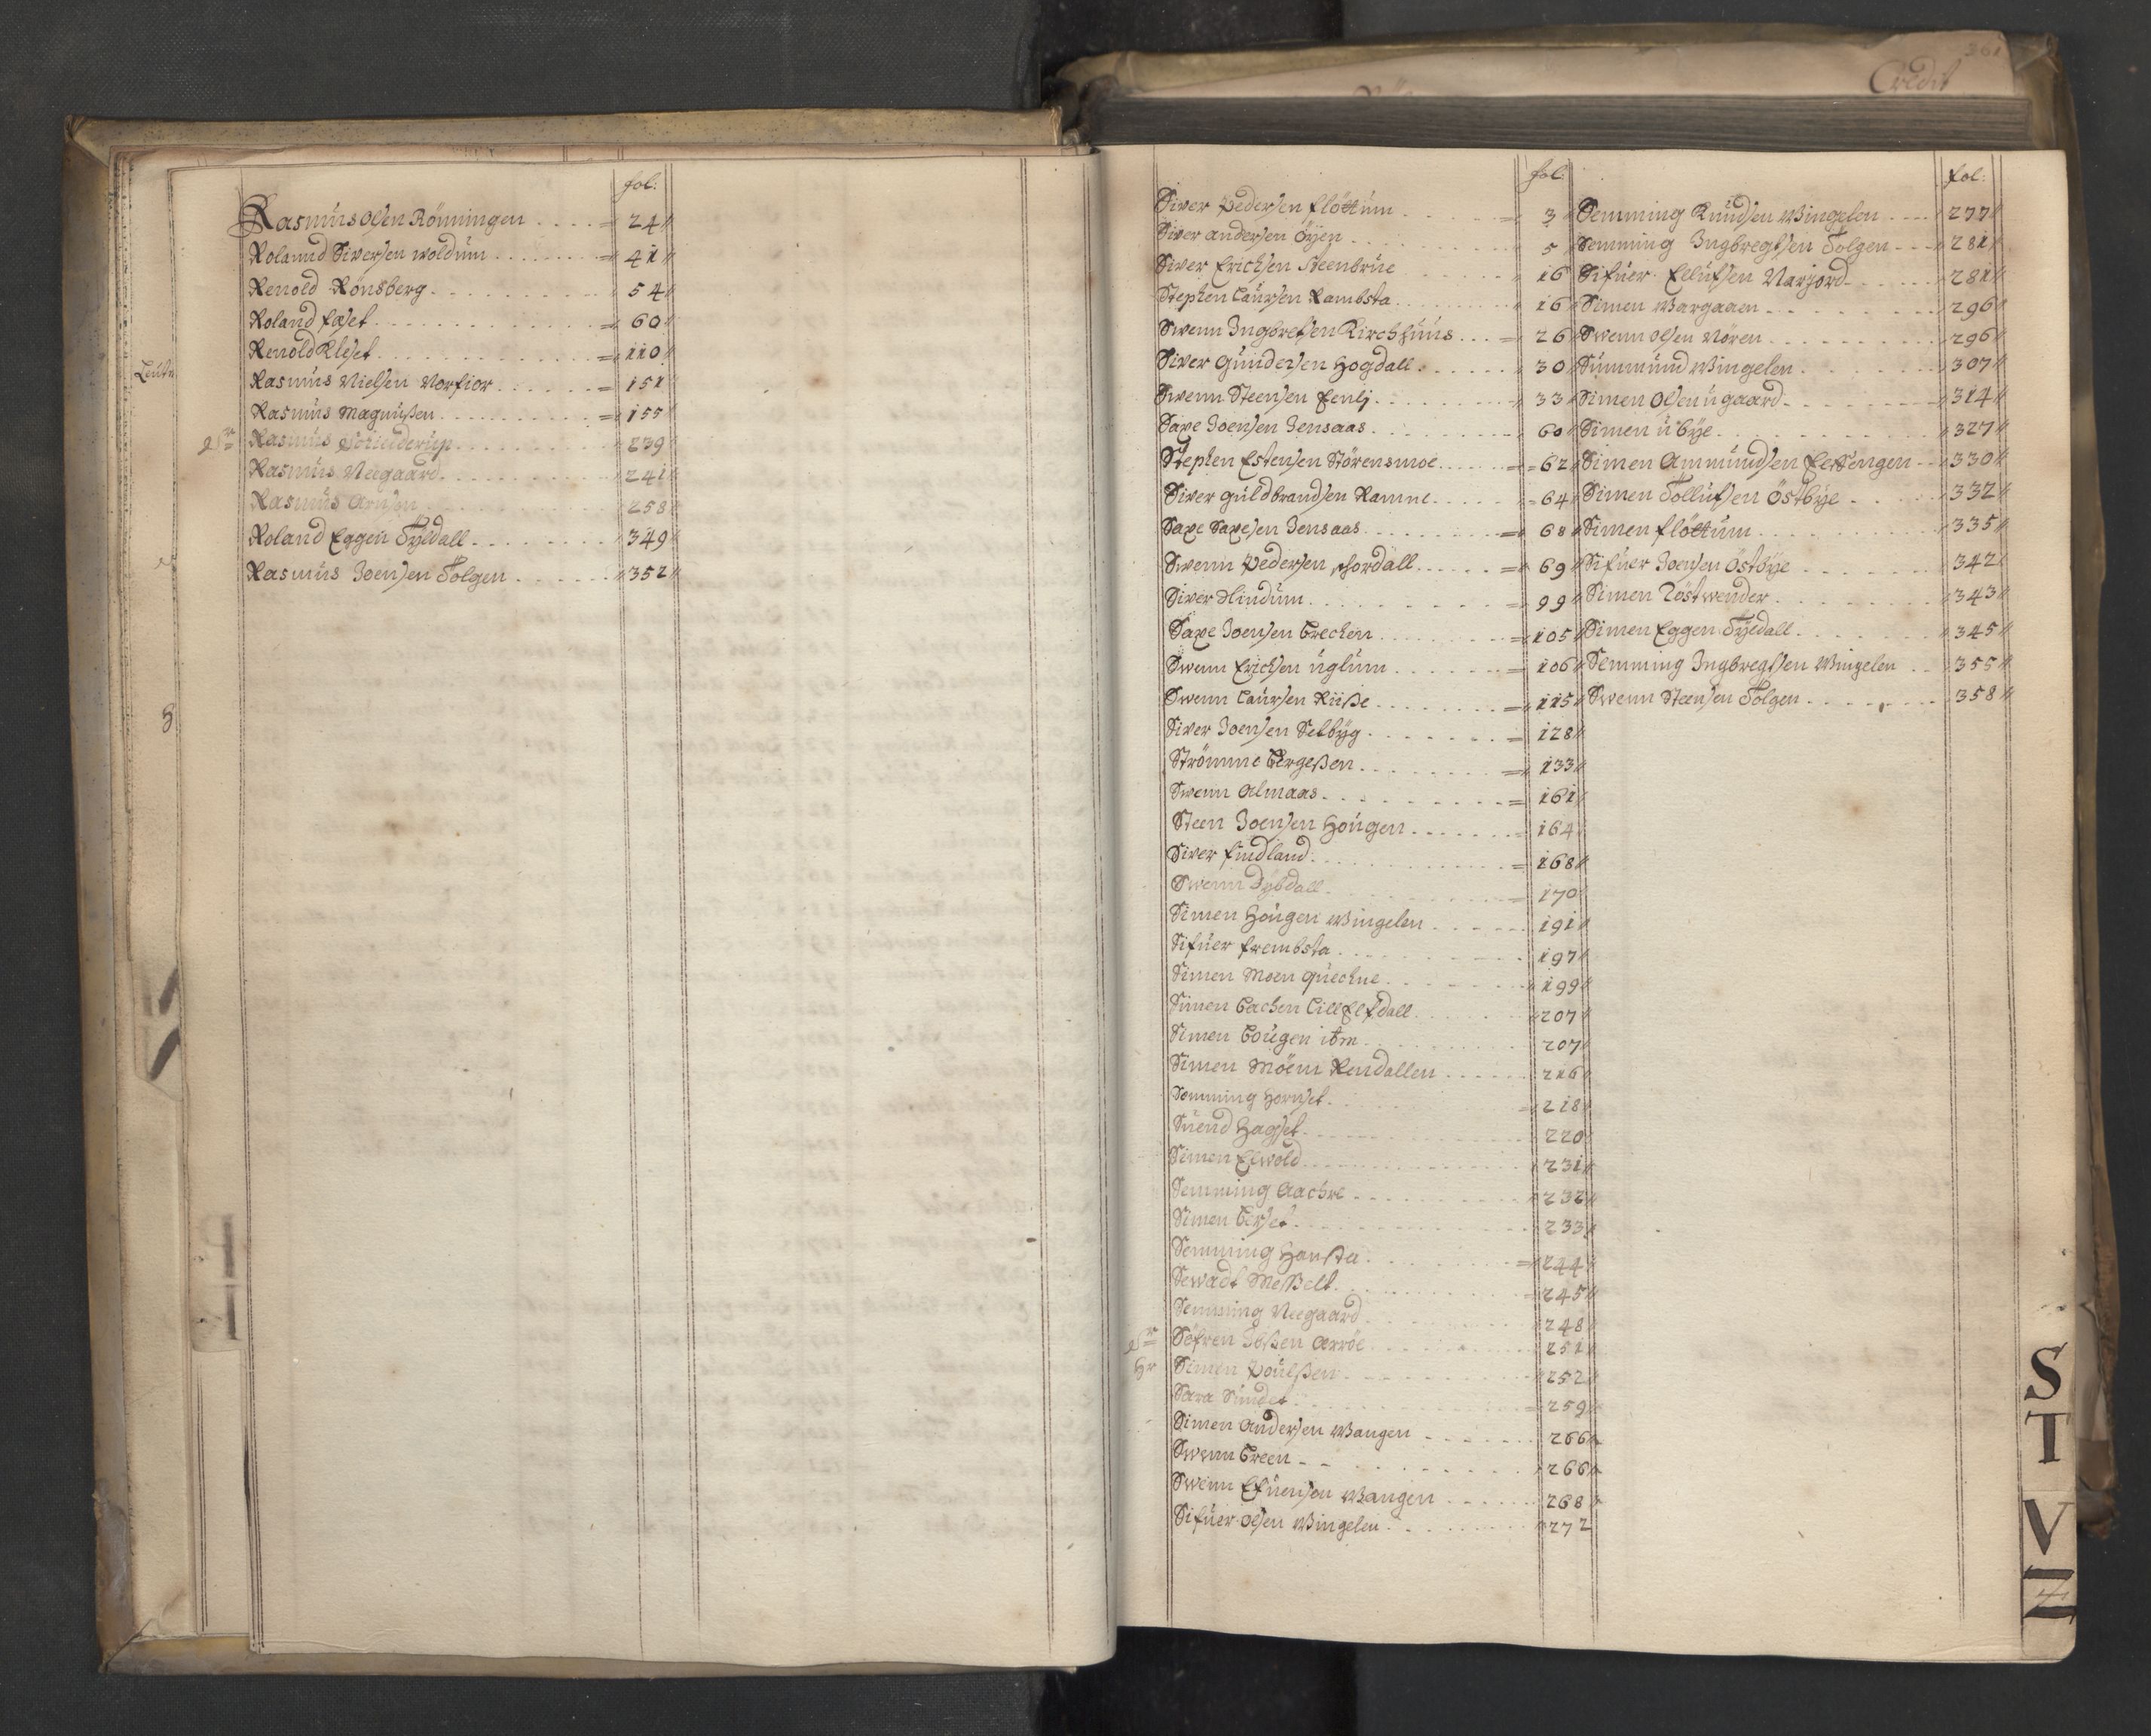 361
Credit
fol:
Rasmus Olsen Rönningen 24
Rolannd Siversen woldum 41
Renold Rönsberg 54
Roland faset 60
Renold Kleset 110
Rasmus Nielsen Norfior 151
Rasmus Magnussen 155
Sr Rasmus Schielderup 239
Rasmus Neegaard 241
Rasmus Arnsen 258
Roland Eggen Tyldall 349
Rasmus Joensen Tolgen 352
Leutn
fol:
Siver Pedersen flöttum 3
Siver andersen öyen 5
Siver Erichsen Steenbrue 16
Stephen Laursen Rambsta 16
Swenn Ingbretsen Kirchhuus 26
Siver Gundersen Hogdall 30
Swenn Steensen Eenlj 33
Saxe Joensen Jensaas 60
Stephen Estensen Störensmoe 62
Siver guldbrandsen Ramne 64
Saxe Saxesen Jensaas 68
Swenn Pedersen Hordall 69
Siver Hindum 99
Saxe Joensen Brechen 105
Swenn Erichsen uglum 106
Swenn Laursen Riisse 115
Siver Joensen Selbyg 128
Strömme Bergessen 133
Swenn Almaas 161
Steen Joensen Hougen 164
Siver findland 168
Swenn Dybdall 170
Simen Hougen Wingelen 191
Sifuer frembsta 197
Simen Moen Quechne 199
Simen Bachen LillElfdall 207
Simen Hougen itm 207
Simen Möem Rendallen 216
Semming Hornset 218
Suend Hagset 220
Simen Elwold 231
Semming Aachre 232
Simen Berset 233
Semming Hansta 244
Sewadt Messelt 245
Semming Neegaard 248
Sr Söfren Jossen Arröe 251
Hr Simen Poulssen 252
Sara Sundet 259
Simen Andersen Wangen 266
Swenn Breen 266
Swenn Efuensen Wangen 268
Sifuer Olsen Wingelen 272
fol:
Semming Knudsen Wingelen 277
Semming Ingbregtsen Tolgen 281
Sifuer Ellufsen Narjord 281
Simen Wargaaen 296
Swenn Olsen Nören 296
Summund Wingelen 307
Simen Olsen ugaard 314
Simen ubye 327
Simen Ammundsen Eldsengen 330
Simen Tollufsen Östbye 332
Simen flöttum 335
Sifuer Joensen Östbye 342
Simen Röstwender 343
Simen Eggen Tyldall 345
Semming Ingbregtsen Wingelen 355
Swenn Steensen Tolgen 358
S
T
V
Z